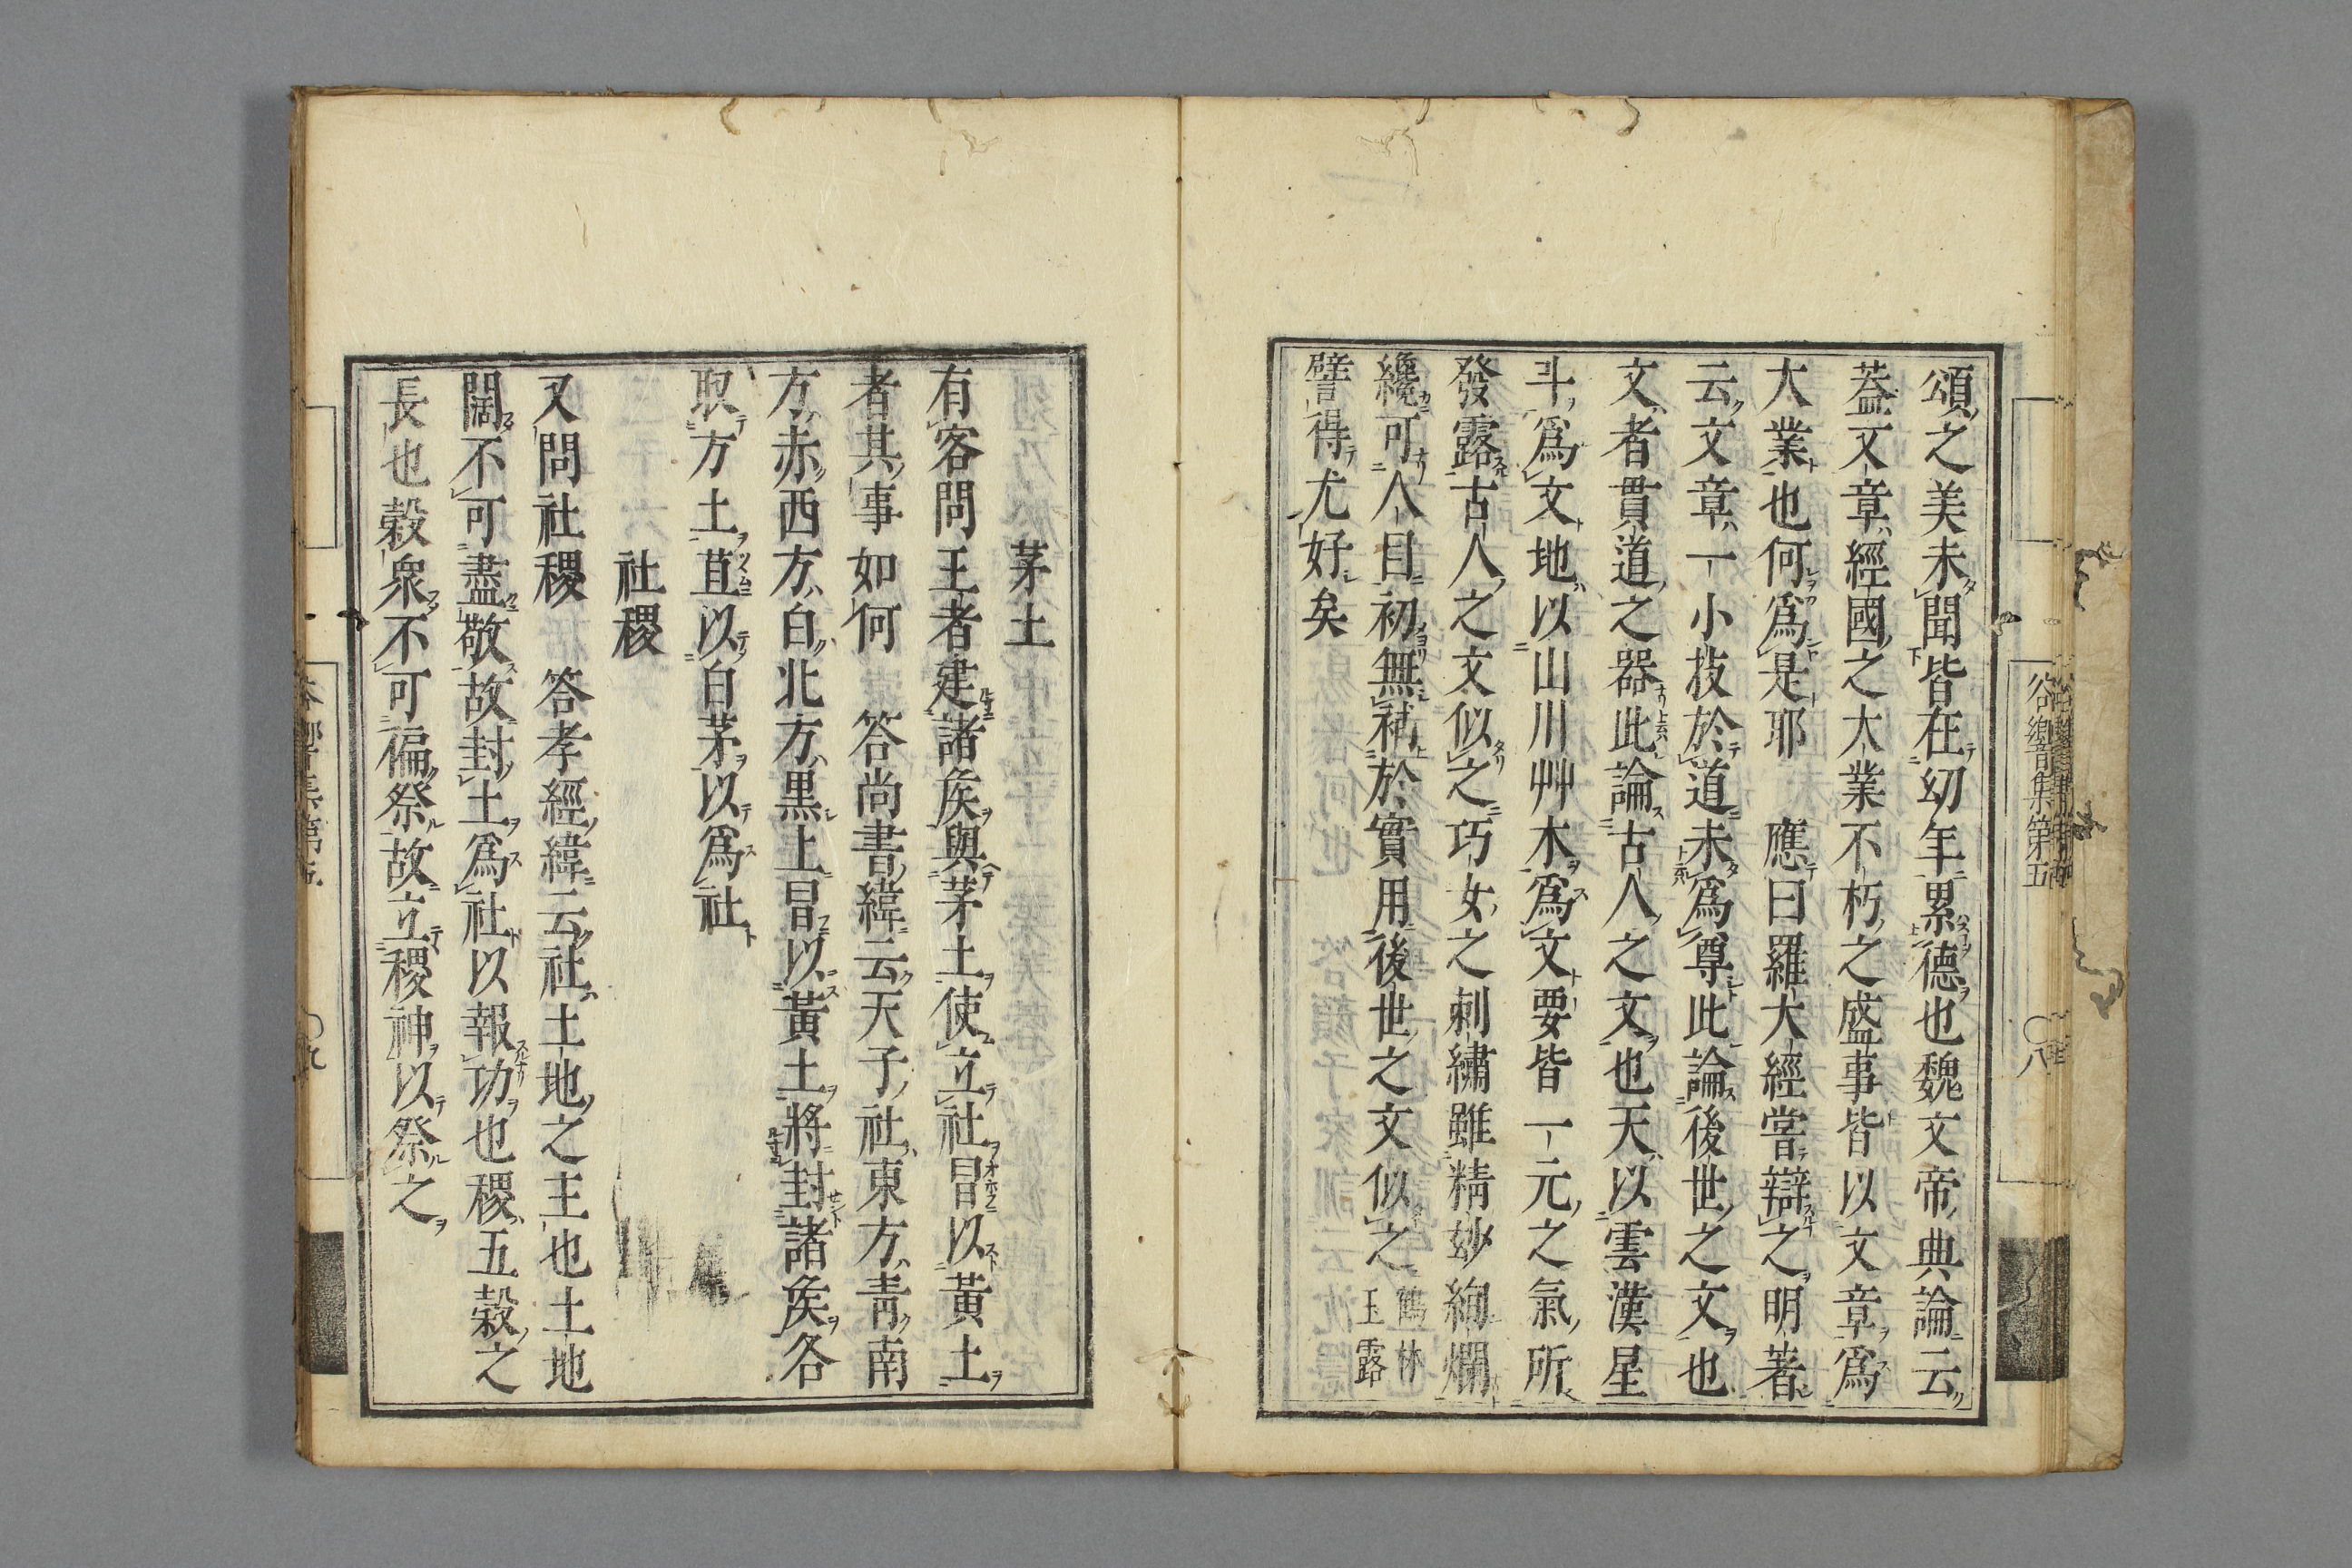 頌之美未聞皆在幼年累德也魏文帝典論云
蓋文章經國之大業不朽之盛事皆以文章爲
大業也何爲是耶　應曰羅大經嘗辯之明著
云文章一小技於道未爲尊此論後世之文也
文者貫道之器此論古人之文也天以雲漢星
斗爲文地以山川艸木爲文要皆一元之氣所
發露古人之文似之巧女之刺繡雖精妙絢爛
纔可人目初無補於實用後世之文似之
鶴林
玉露
譬得尤好矣
谷響集第五
〇八
茅土
有客問王者建諸矦與茅土使立社冒以黃土
者其事如何　答尚書緯云天子社東方青南
方赤西方白北方黒上冒以黃土將封諸矦各
取方土苴以白茅以爲社
社稷
又問社稷　答孝經緯云社土地之主也土地
闊不可盡敬故封土爲社以報功也稷五穀之
長也穀衆不可徧祭故立稷神以祭之